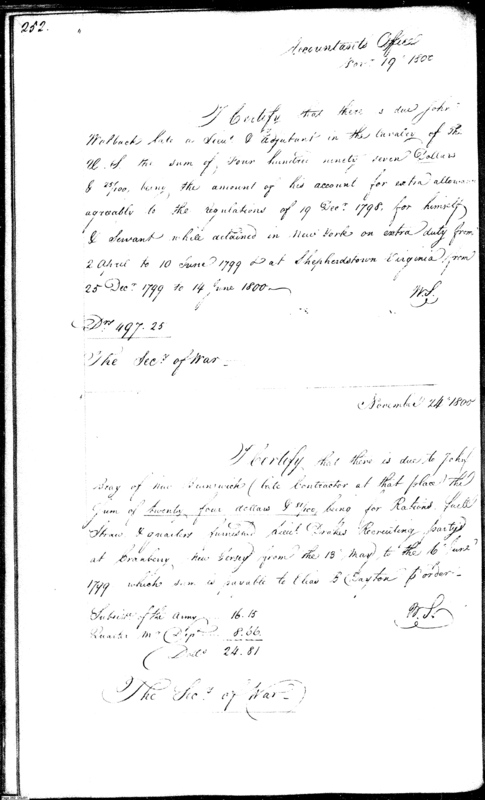 252.
Accountants Office
Novr. 19th 1800
I Certify that there is due John
Walbach late a Lieut. & Adjutant in the Cavalry of the
U. S. the sum of, Four hundred ninety seven Dollars
& 25/100, being the amount of his account for extra allowance
agreeably to the regulations of 19 Decr. 1798. for himself
& Servant while detained in New York on extra duty from
2 April to 10 June 1799 & at Shepherdstown Virginia from
25 Decr. 1799 to 14 June 1800
W.S.
Drs. 497.25
The Secy. of War
November 24th 1800
I Certify that there is due to John
Bray of New Brunswick (late Contractor at that place the
Sum of twenty four dollars & 81/100 being for Rations, fuell
Straw & quarters furnished Lieut. Drakes Recruiting party
at Cranberry New Jersey from the 13 May to the 16 June
1799 which sum is payable to Elias B Dayton p order
W.S.
Subsice. of the Army 16.15
Quarter Mr. Dept. 8.66
Dolls 24.81
The Secy. of War